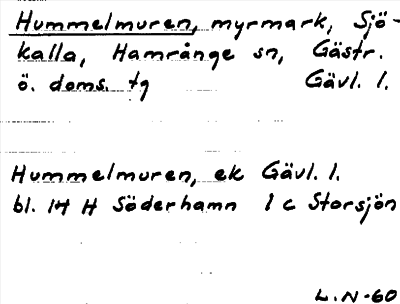 Hummelmuren, myrmark, Sjö-
kalla, Hamrånge sn, Gästr.
ö. doms. tg Gävl. l.
Hummelmuren, ek Gävl. l.
bl. 14 H Söderhamn 1 c Storsjön
L.N-60